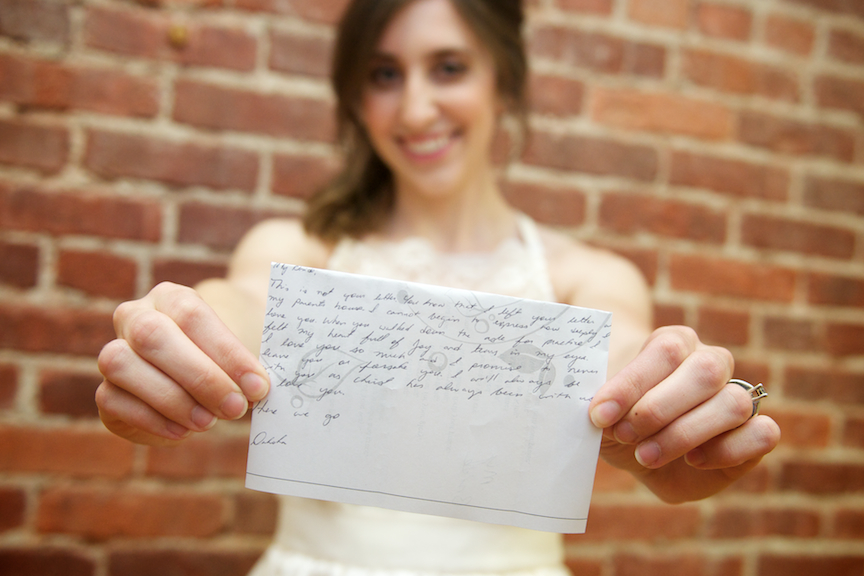 My
This is not your letter. You know that I left your letter
my parents house. I cannot begin to express how deeply I
love you. When you walked down the aisle for practice I
felt my heart full of joy and tears in my eyes
I love you so much and I promise never
leave you or forsake you. I will always be
with you as Christ has always been with us
I love you.
Here we go
Dakota